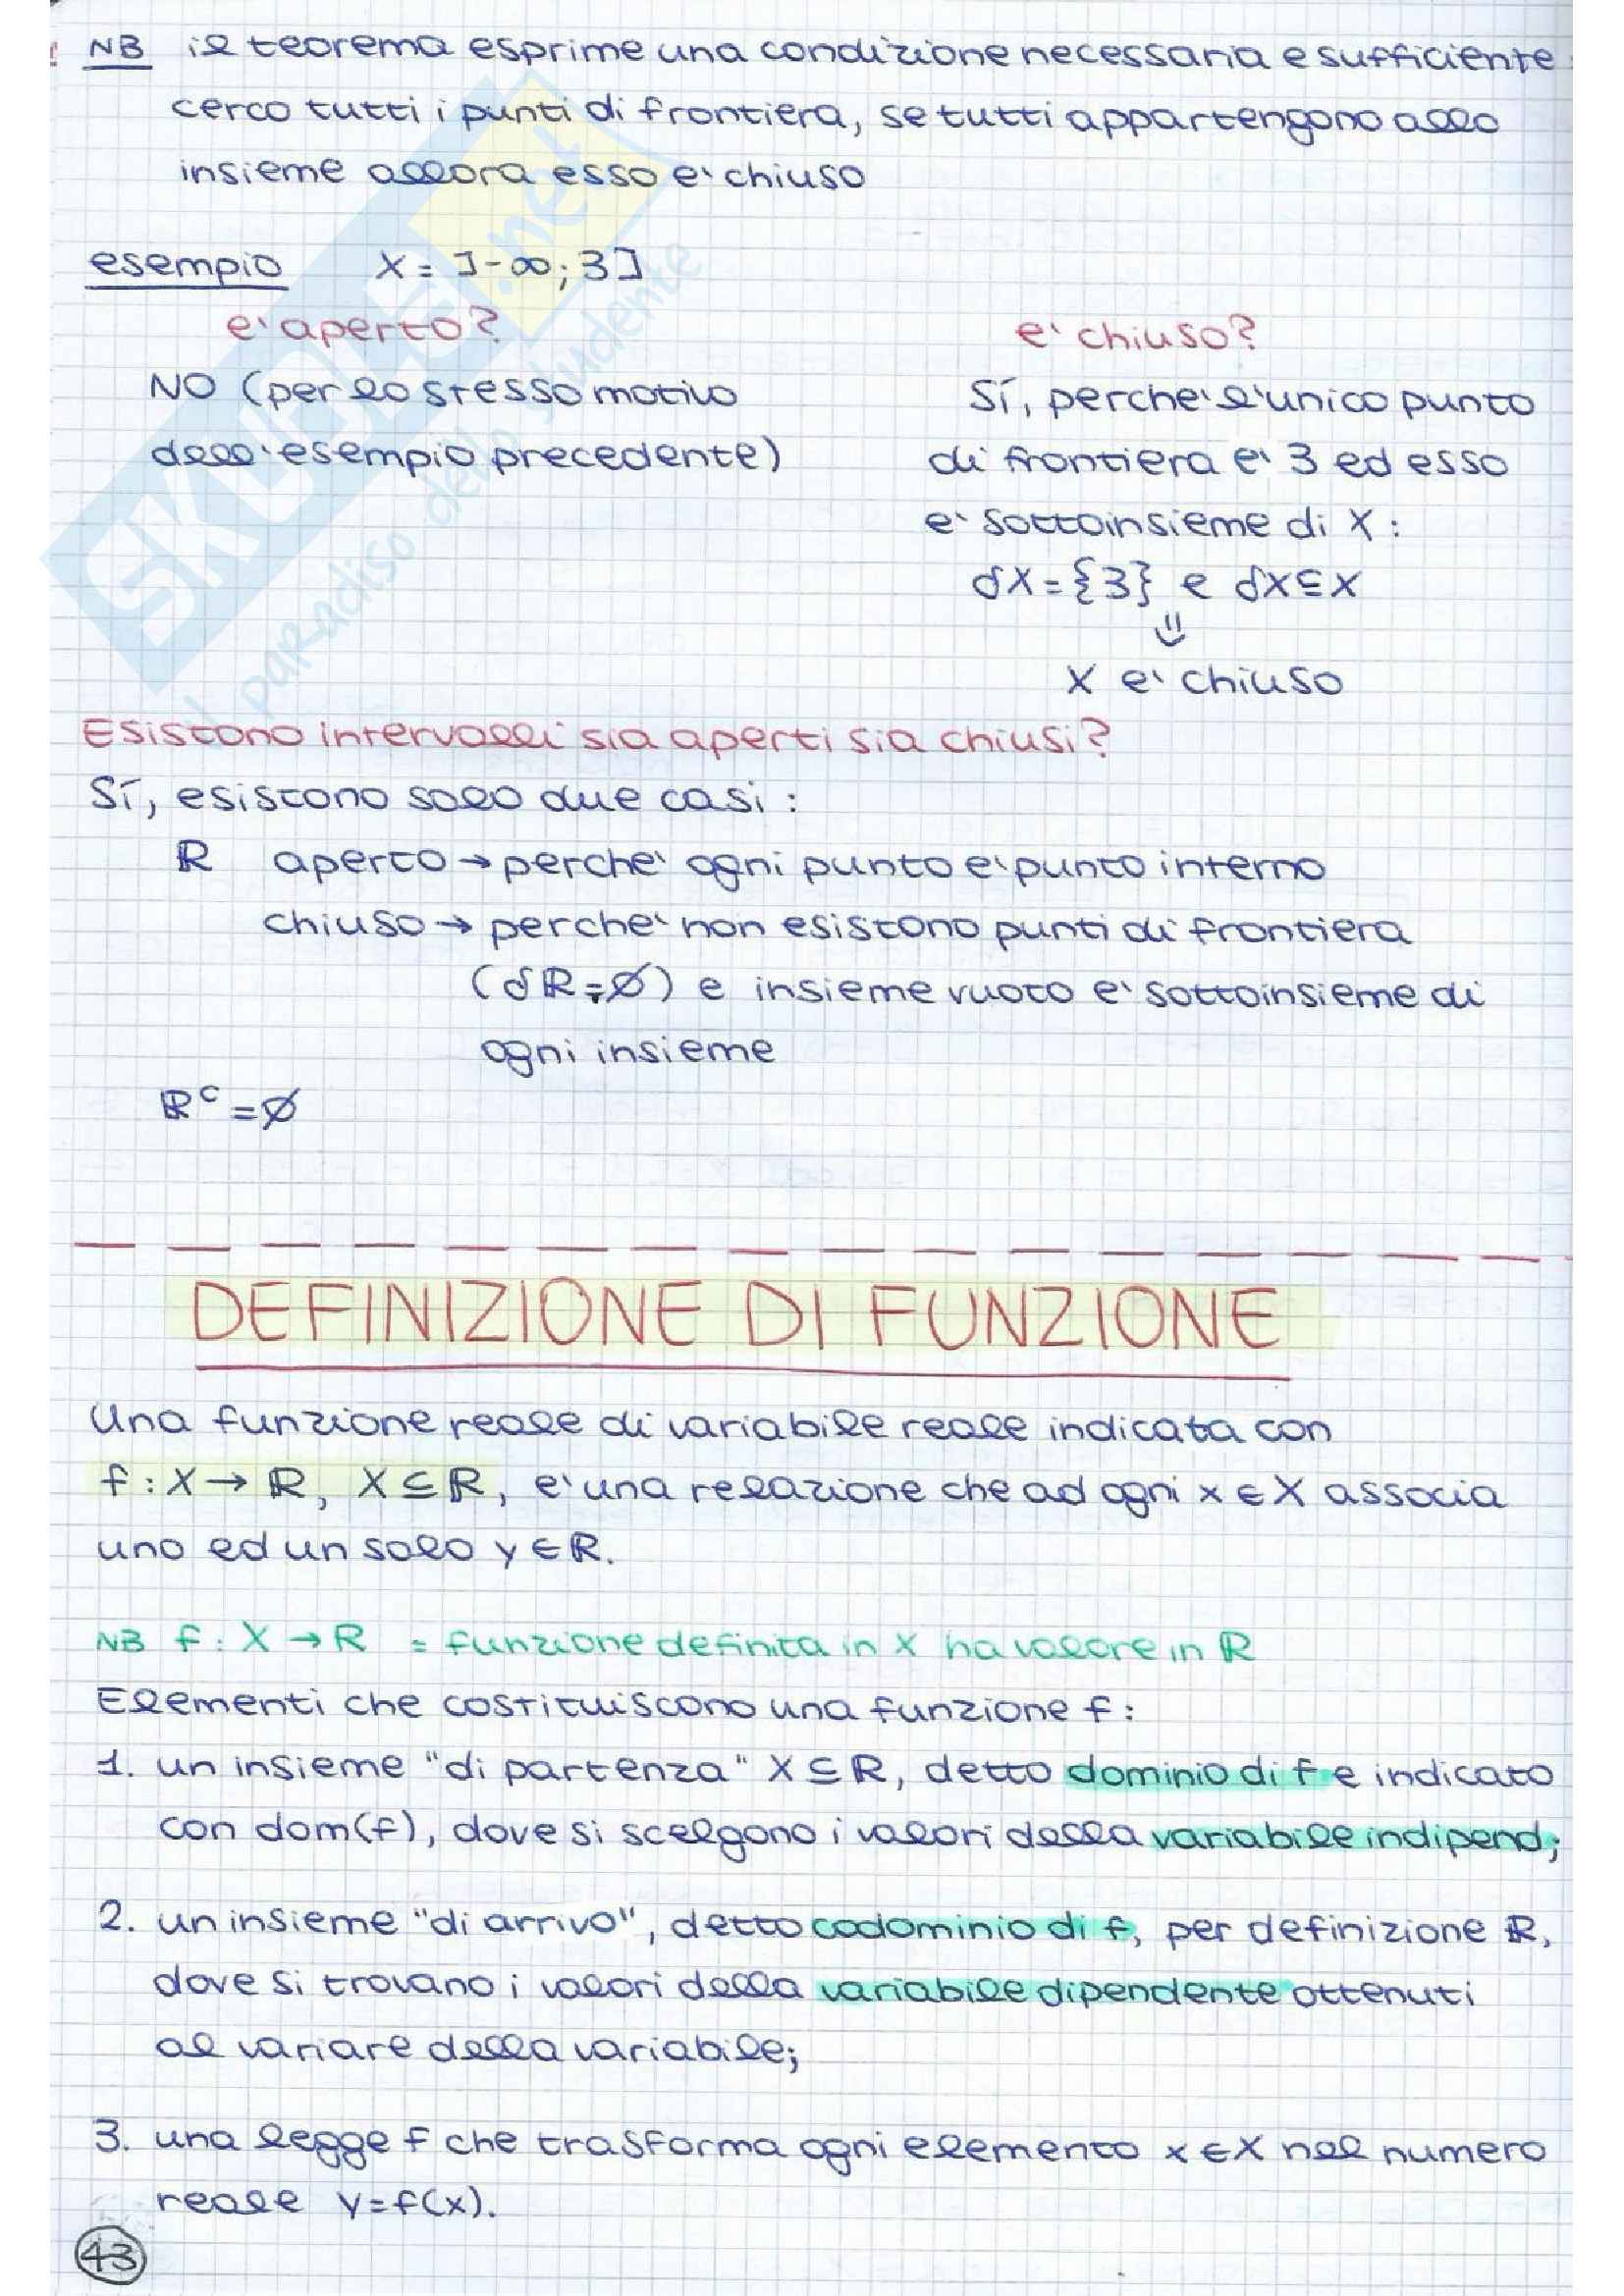 ! NB il teorema esprime una condizione necessaria e sufficiente:
cerco tutti i punti di frontiera, se tutti appartengono allo
insieme allora esso e' chiuso
esempio X = ]-∞; 3]
e' aperto?
NO (per lo stesso motivo
dell'esempio precedente)
e' chiuso?
Sí, perche' l'unico punto
di frontiera e' 3 ed esso
e' sottoinsieme di X :
∂X = {3} e ∂X ⊆ X
⇓
X e' chiuso
Esistono intervalli sia aperti sia chiusi?
Sí, esistono solo due casi :
ℝ aperto → perche' ogni punto e' punto interno
chiuso → perche' non esistono punti di frontiera
(∂ℝ = ∅) e insieme vuoto e' sottoinsieme di
ogni insieme
ℝᶜ = ∅
DEFINIZIONE DI FUNZIONE
Una funzione reale di variabile reale indicata con
f : X → ℝ, X ⊆ ℝ, e' una relazione che ad ogni x ∈ X associa
uno ed un solo y ∈ ℝ.
NB f : X → ℝ = funzione definita in X ha valore in ℝ
Elementi che costituiscono una funzione f :
1. un insieme "di partenza" X ⊆ ℝ, detto dominio di f e indicato
con dom(f), dove si scelgono i valori della variabile indipend;
2. un insieme "di arrivo", detto codominio di f, per definizione ℝ,
dove si trovano i valori della variabile dipendente ottenuti
al variare della variabile;
3. una legge f che trasforma ogni elemento x ∈ X nel numero
reale y = f(x).
43
SKUOLA.net
il paradiso dello studente